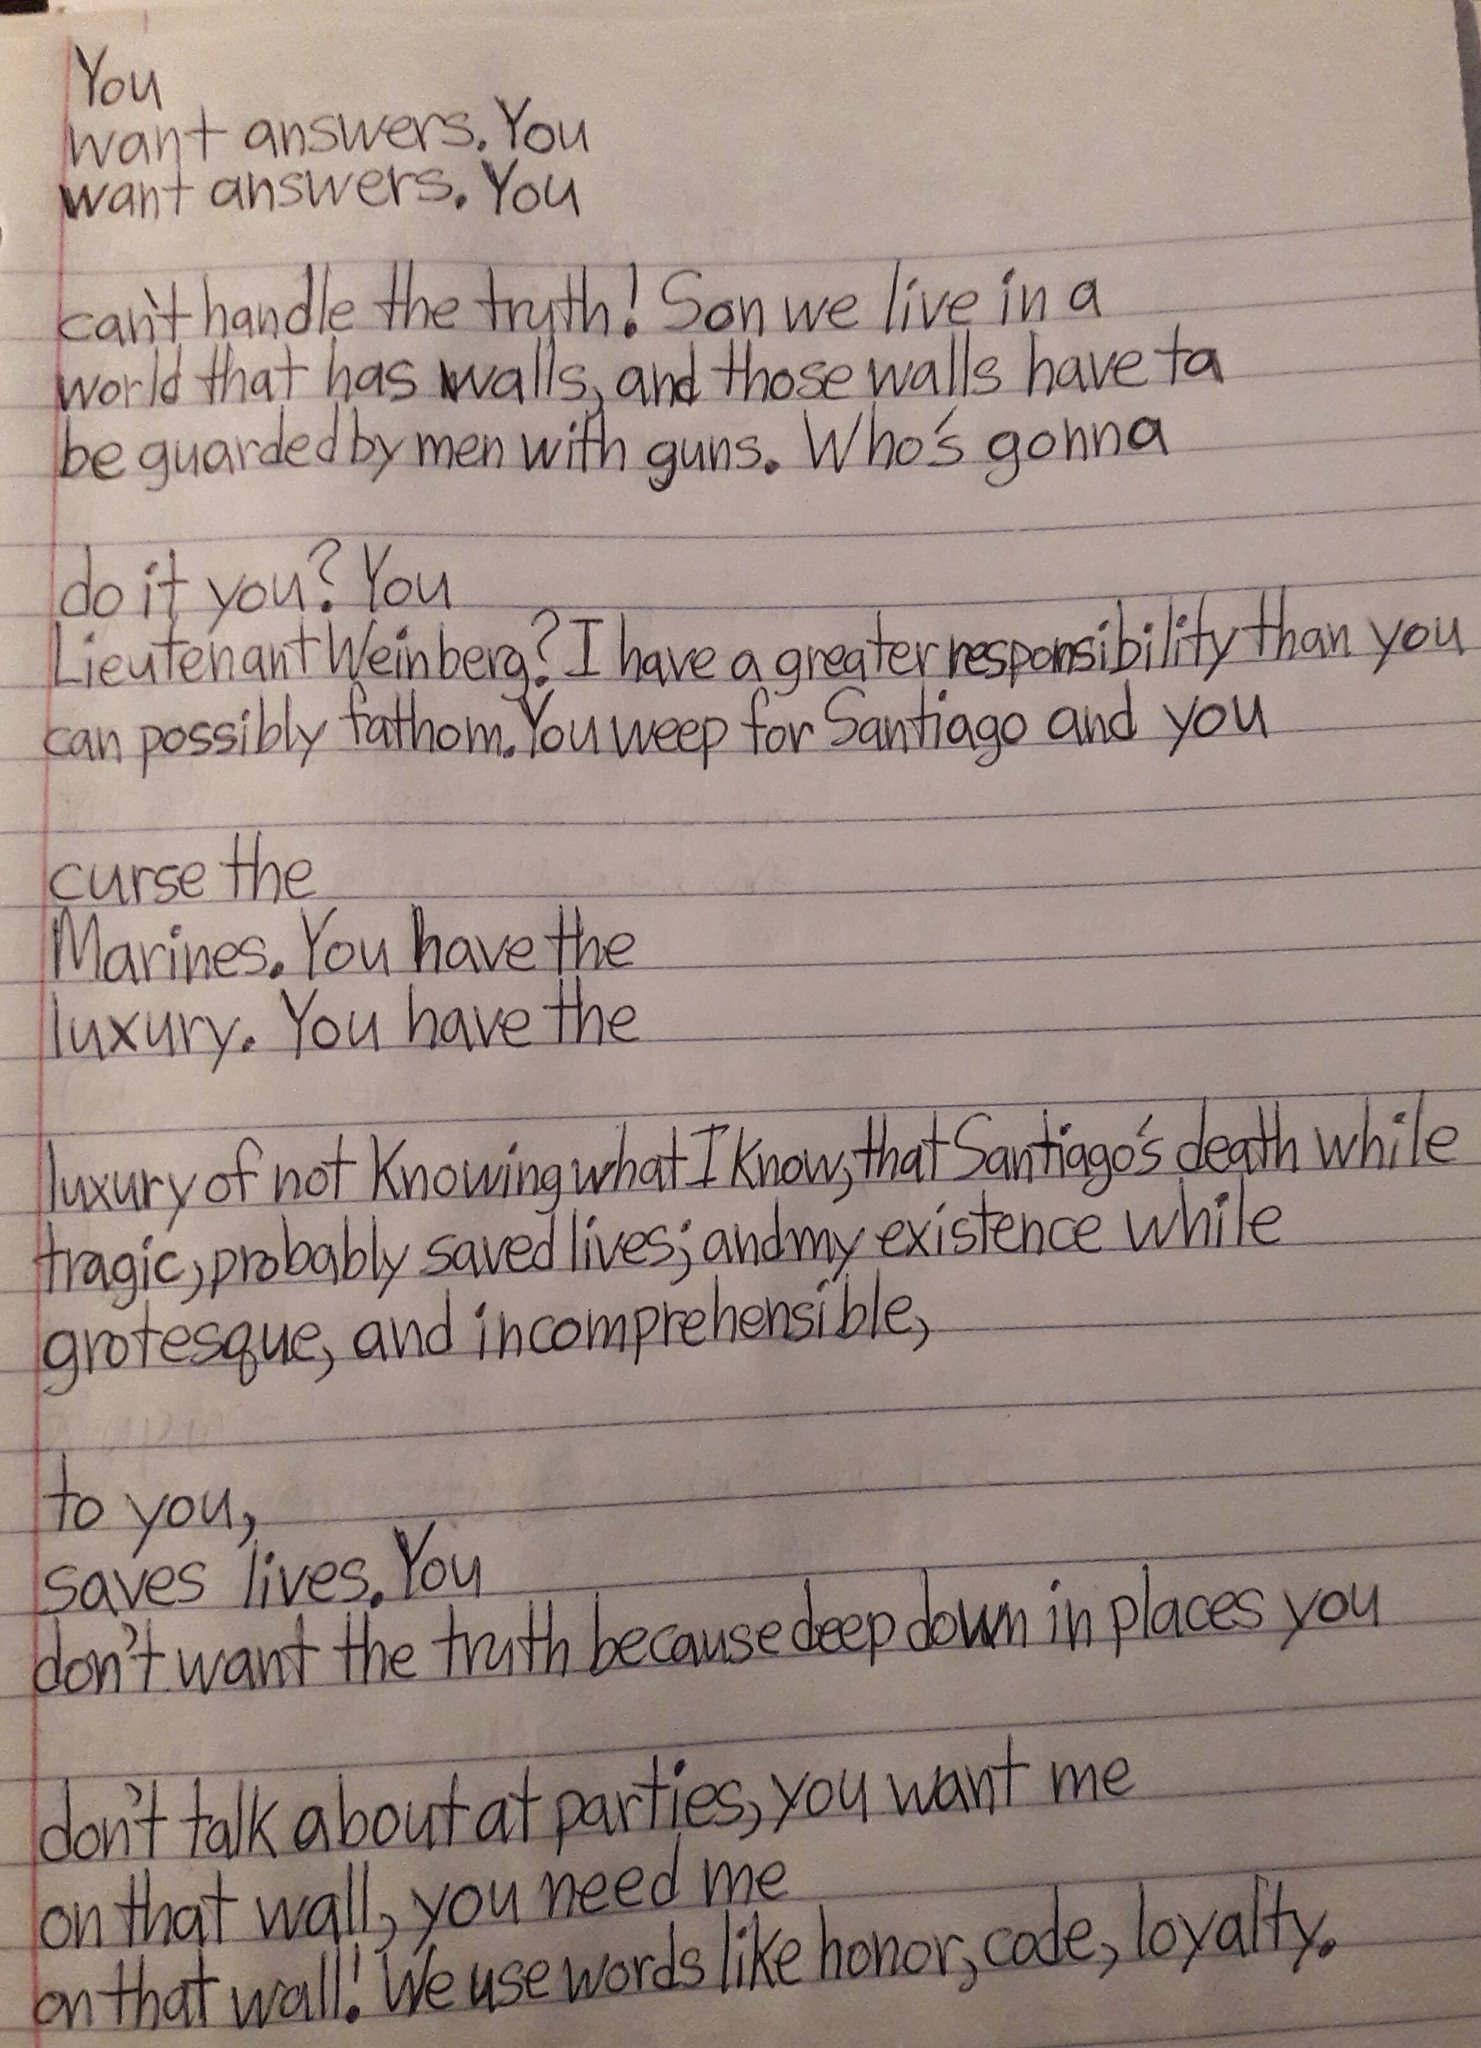 You
want answers. You
want answers. You
can't handle the truth! Son we live in a
world that has walls, and those walls have ta
be guarded by men with guns. Who's gonna
do it you? You
Lieutenant Weinberg? I have a greater responsibility than you
can possibly fathom. You weep for Santiago and you
curse the
Marines. You have the
luxury. You have the
luxury of not Knowing what I know, that Santiago's death while
tragic, probably saved lives; and my existence while
grotesque, and incomprehensible,
to you,
saves lives. You
don't want the truth because deep down in places you
don't talk about at parties, you want me
on that wall, you need me
on that wall! We use words like honor, code, loyalty.